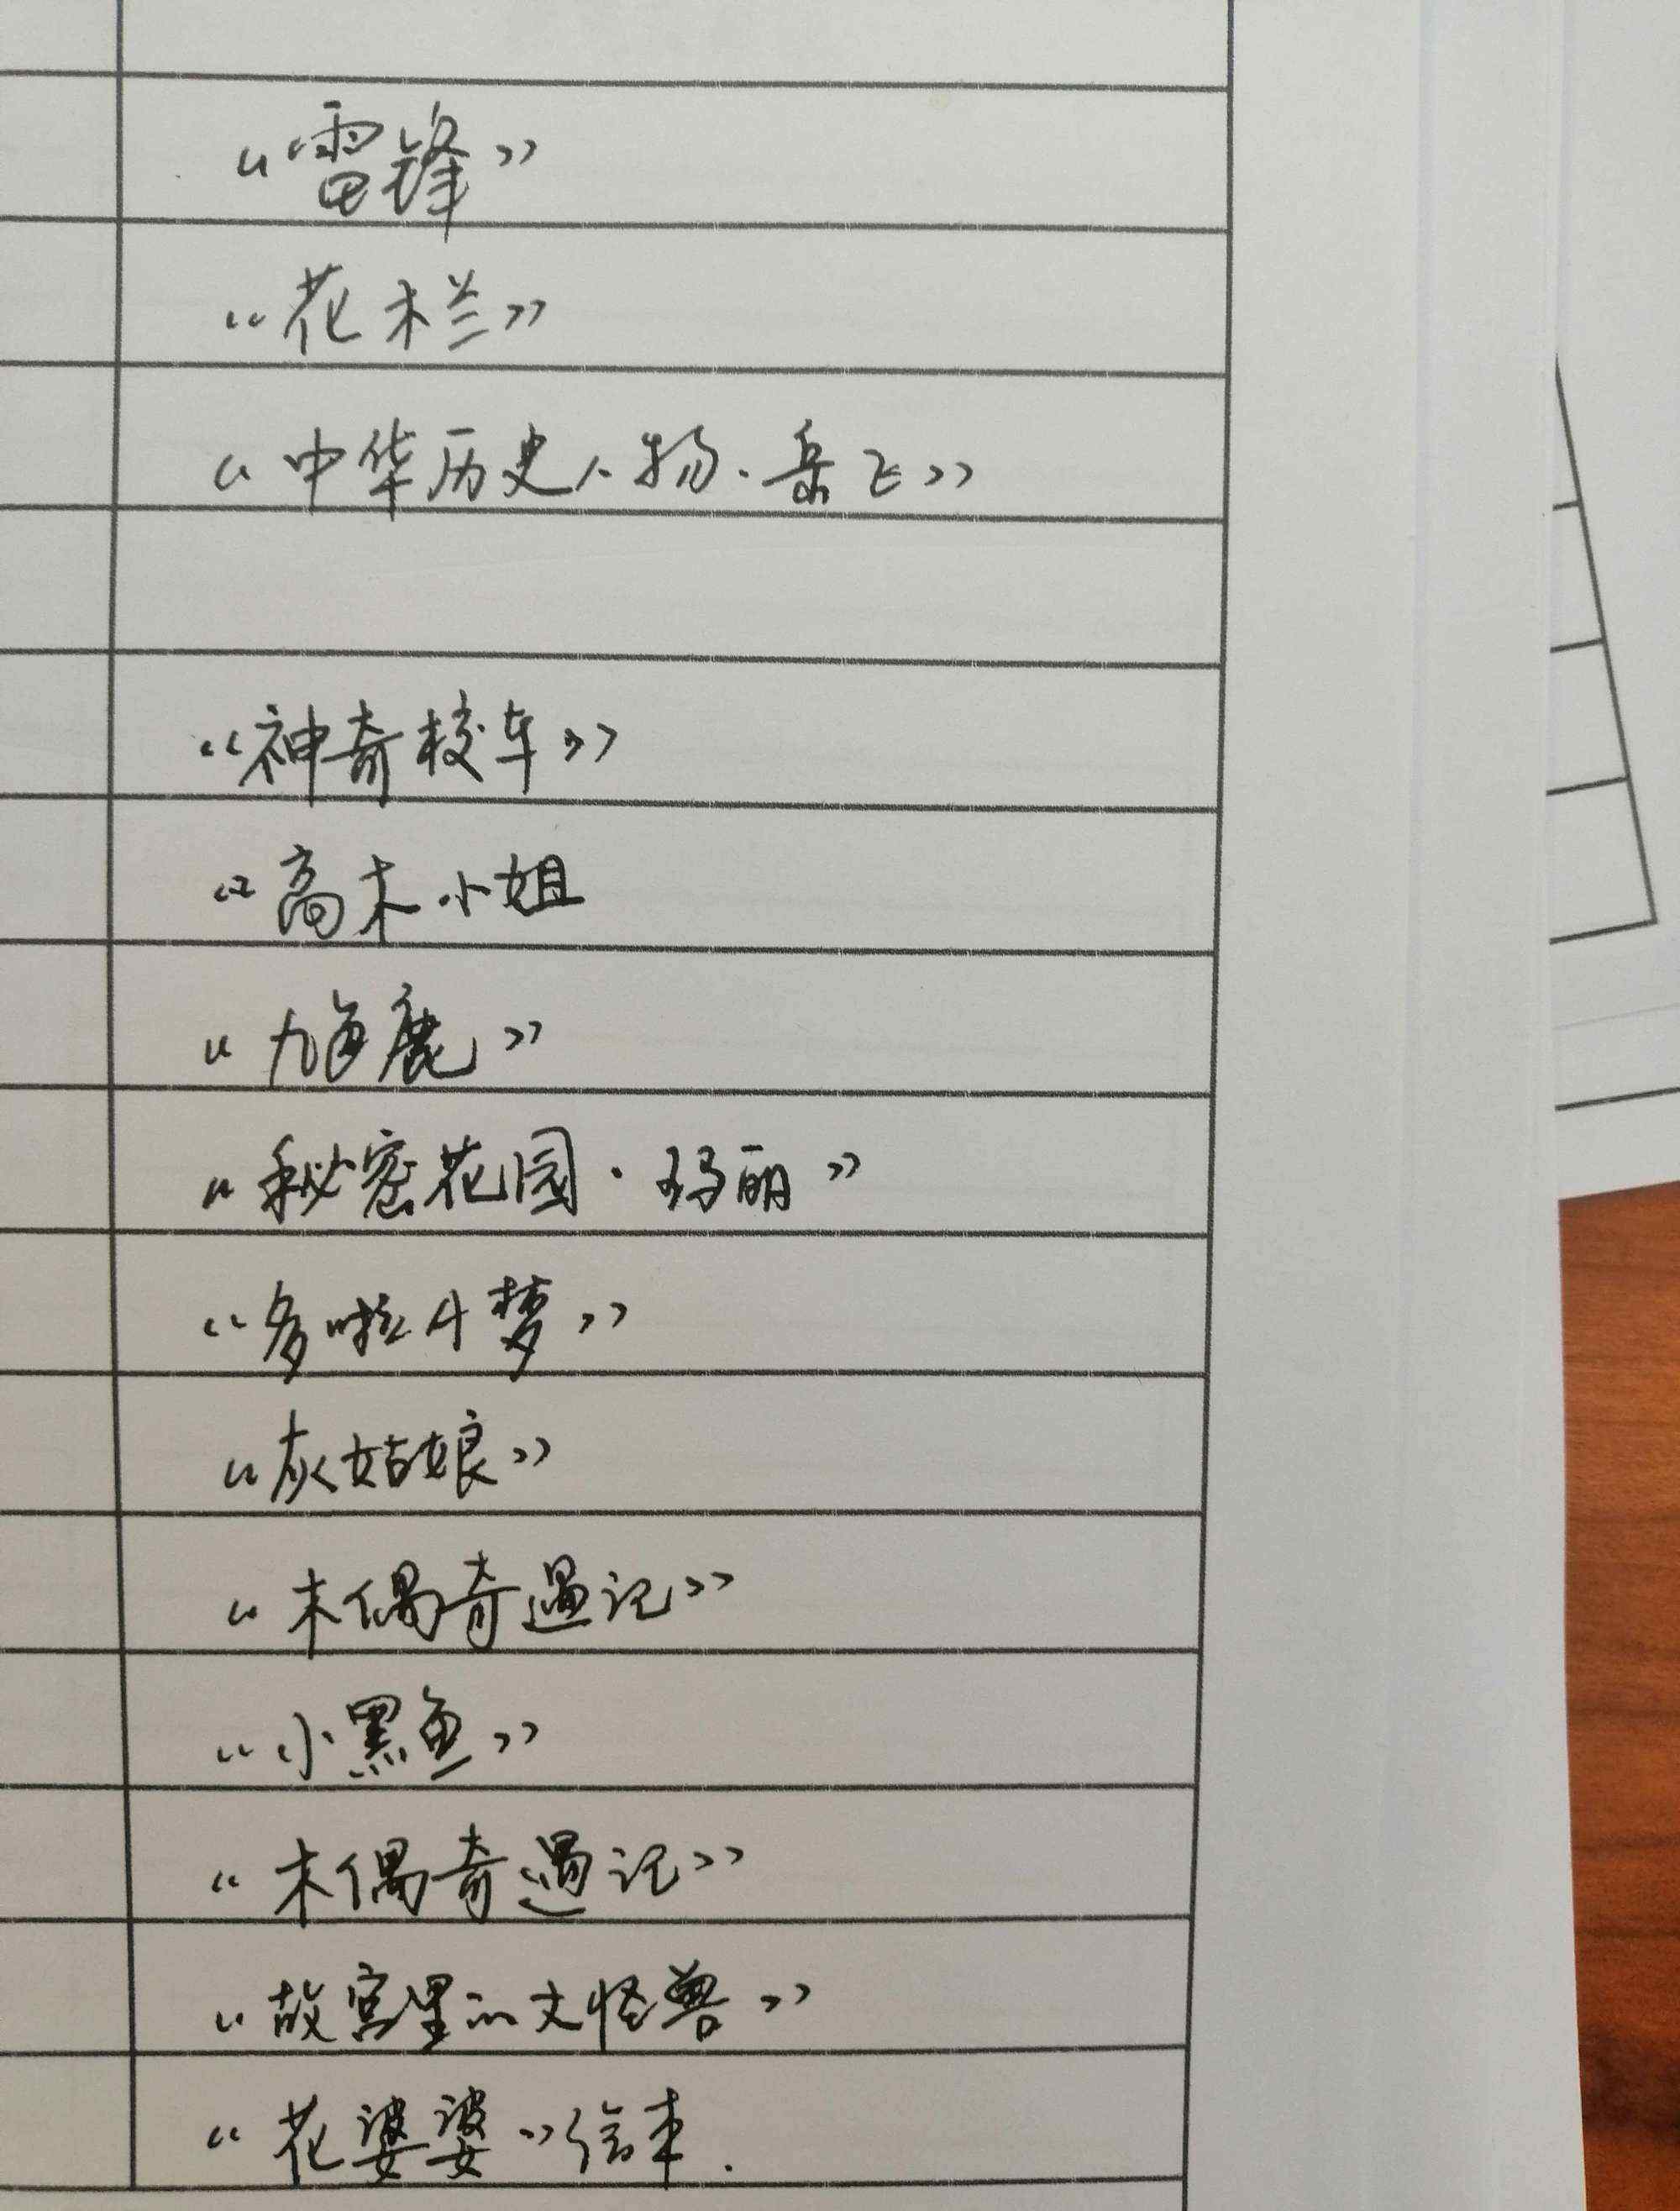 《雷锋》
《花木兰》
《中华历史人物·岳飞》
《神奇校车》
《高木小姐
《九色鹿》
《秘密花园·玛丽》
《多啦A梦》
《灰姑娘》
《木偶奇遇记》
《小黑鱼》
《木偶奇遇记》
《故宫里的大怪兽》
《花婆婆》绘本.